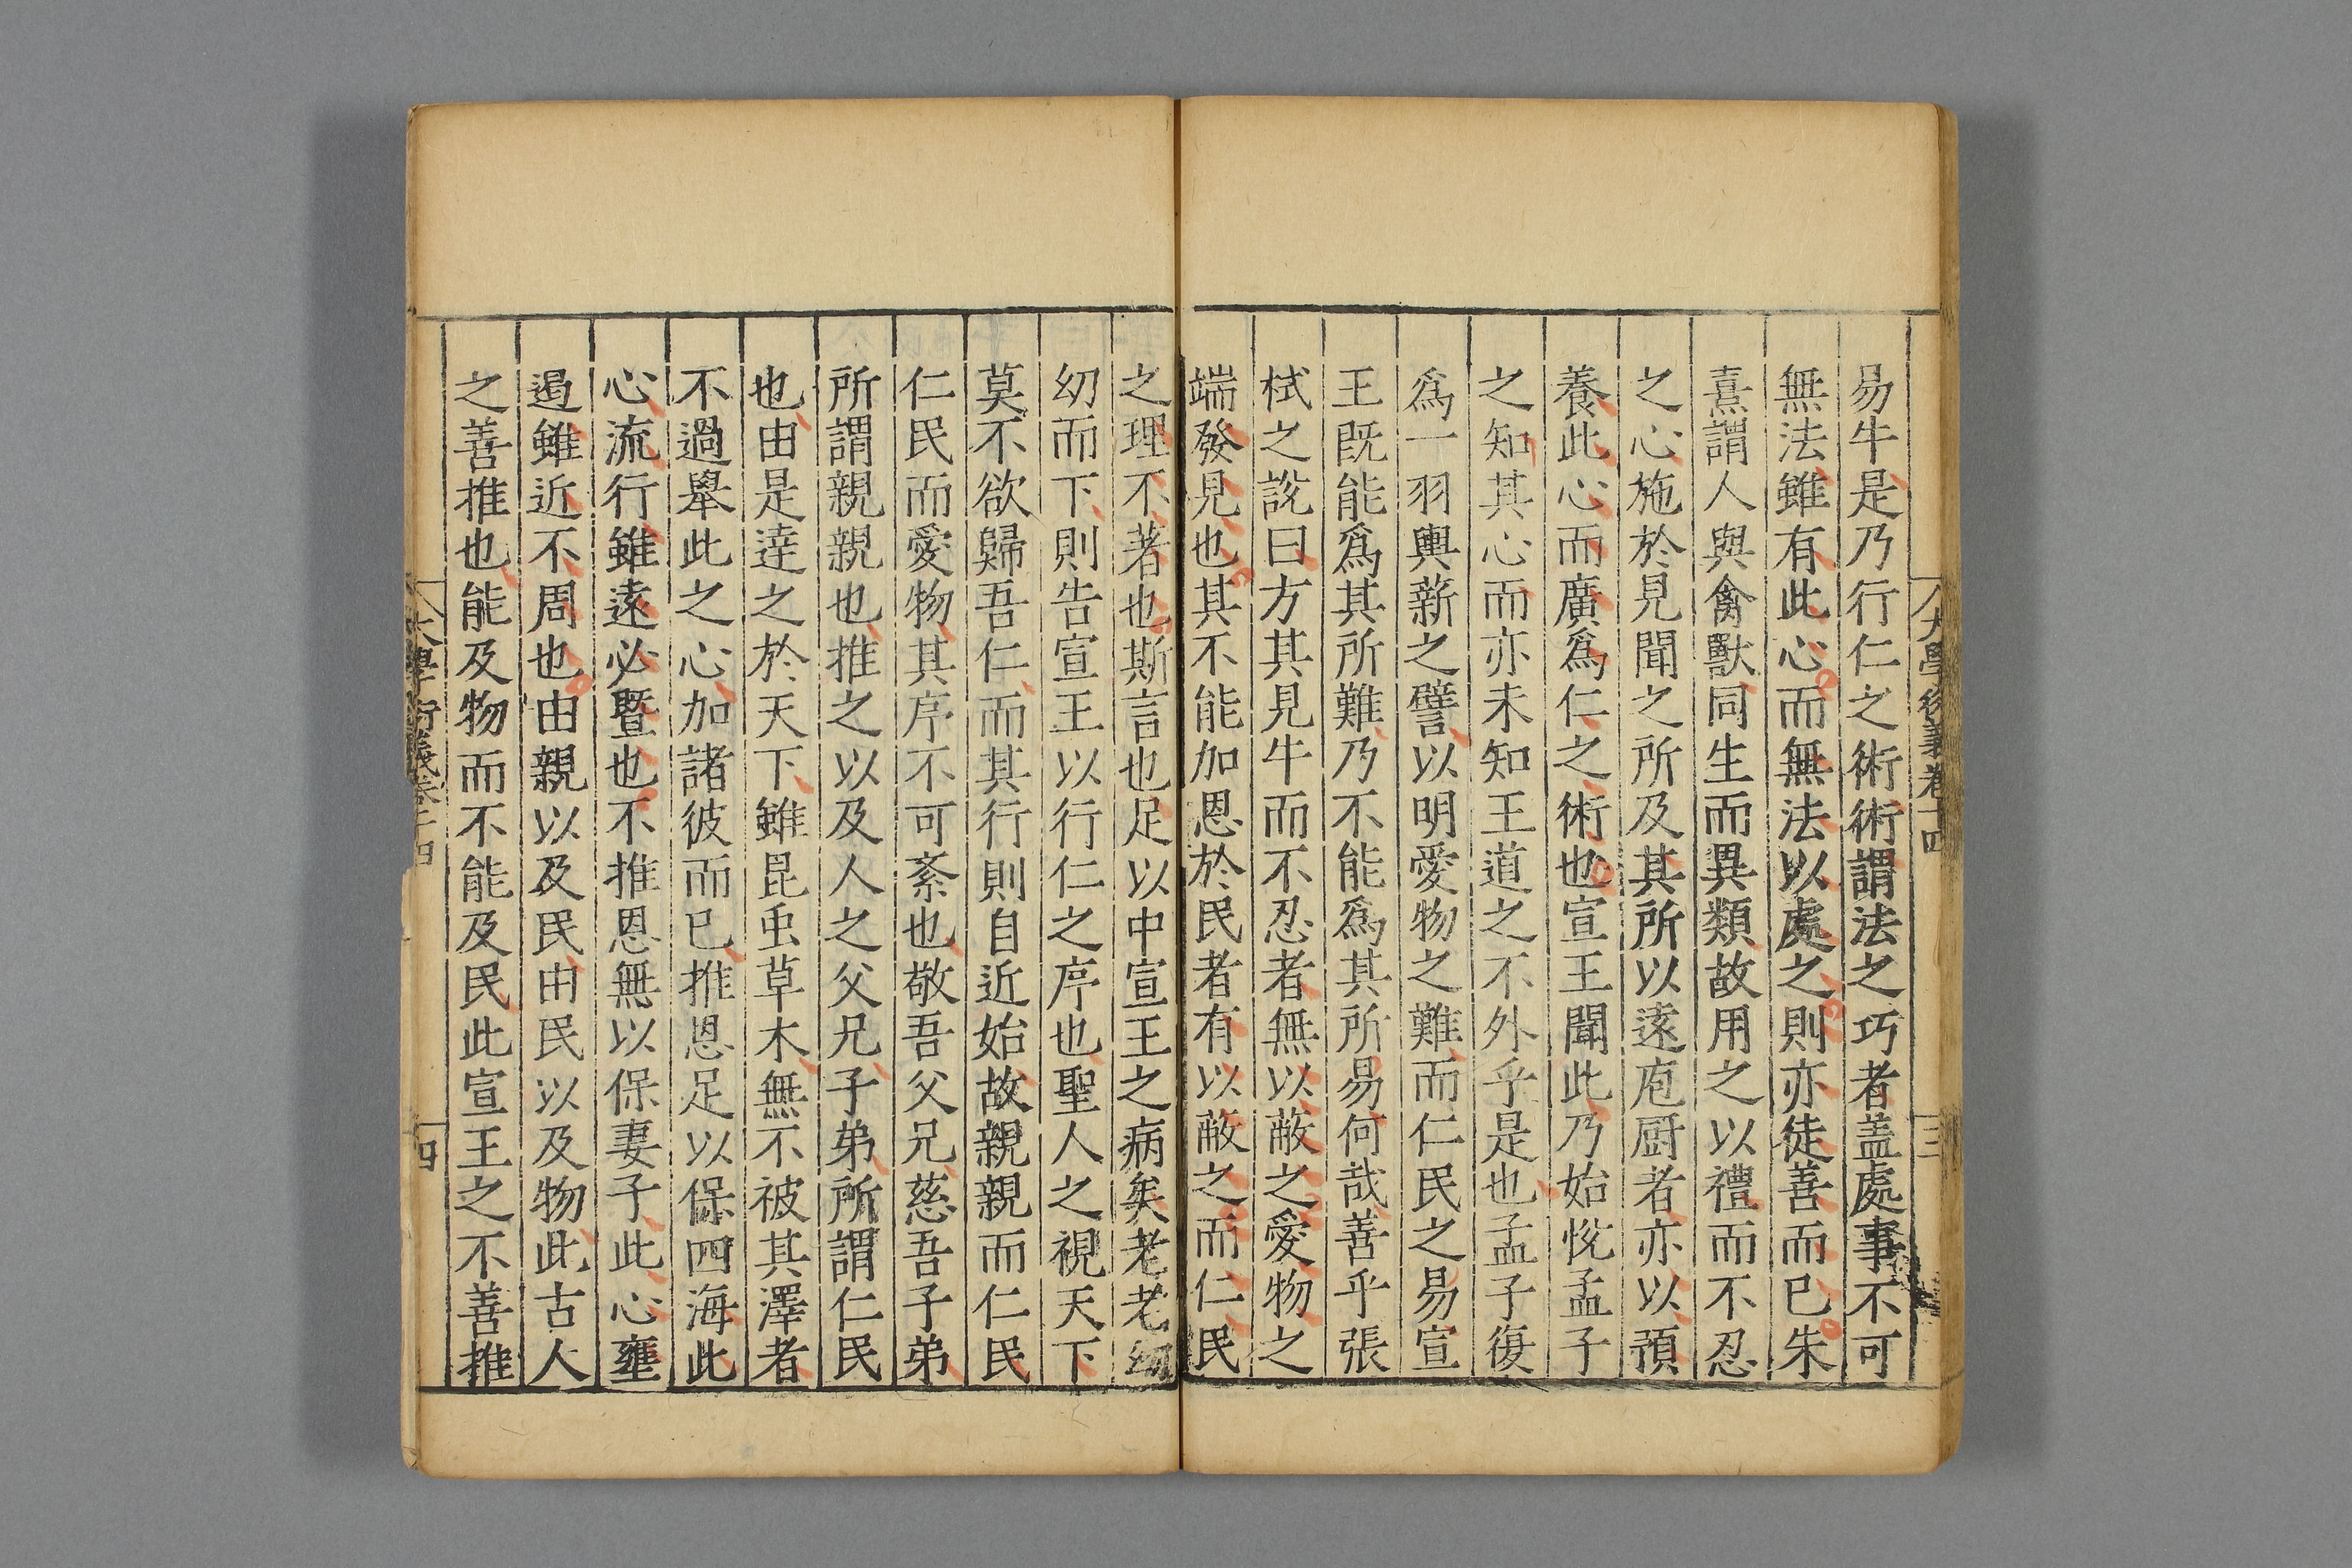 大學衍義卷十四
三
易牛是乃行仁之術術謂法之巧者盖處事不可
無法雖有此心而無法以處之則亦徒善而已朱
熹謂人與禽獸同生而異類故用之以禮而不忍
之心施於見聞之所及其所以遠庖厨者亦以預
養此心而廣爲仁之術也宣王聞此乃始恱孟子
之知其心而亦未知王道之不外乎是也孟子復
爲一羽輿薪之譬以明愛物之難而仁民之易宣
王既能爲其所難乃不能爲其所易何哉善乎張
栻之說曰方其見牛而不忍者無以蔽之愛物之
端發見也其不能加恩於民者有以蔽之而仁民
之理不著也斯言也足以中宣王之病矣老老幼
幼而下則告宣王以行仁之序也聖人之視天下
莫不欲歸吾仁而其行則自近始故親親而仁民
仁民而愛物其序不可紊也敬吾父兄慈吾子弟
所謂親親也推之以及人之父兄子弟所謂仁民
也由是達之於天下雖昆虫草木無不被其澤者
不過舉此之心加諸彼而已推恩足以保四海此
心流行雖遠必曁也不推恩無以保妻子此心壅
遏雖近不周也由親以及民由民以及物此古人
之善推也能及物而不能及民此宣王之不善推
大學衍義卷十四
四